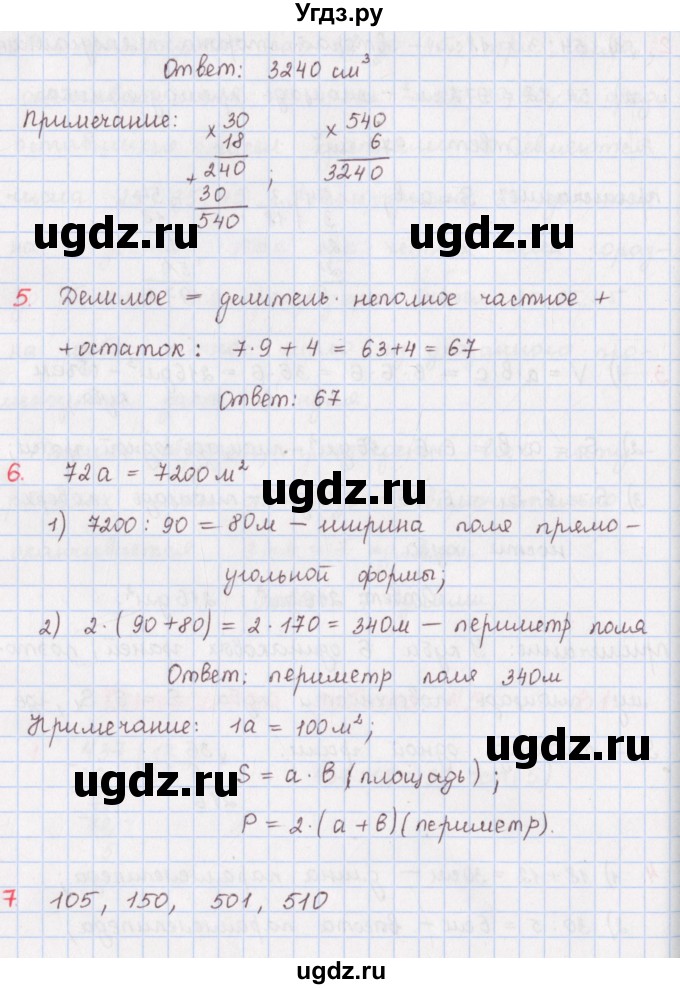 Угдз.ру
Ответ: 3240 см³
Примечание: × 30 × 540
18 6
+ 240 ; 3240
30
540
ugdz.ru ugdz.ru
5. Делимое = делитель · неполное частное +
+ остаток: 7·9 + 4 = 63+4 = 67
Ответ: 67
6. 72а = 7200 м²
ugdz.ru
1) 7200 : 90 = 80м – ширина поля прямо-
угольной формы;
2) 2·(90+80) = 2·170 = 340м – периметр поля
Ответ: периметр поля 340м
Примечание: 1а = 100м²;
ugdz.ru
S = а · в (площадь);
P = 2·(а + в)(периметр).
7. 105, 150, 501, 510
ugdz.ru
ugdz.ru